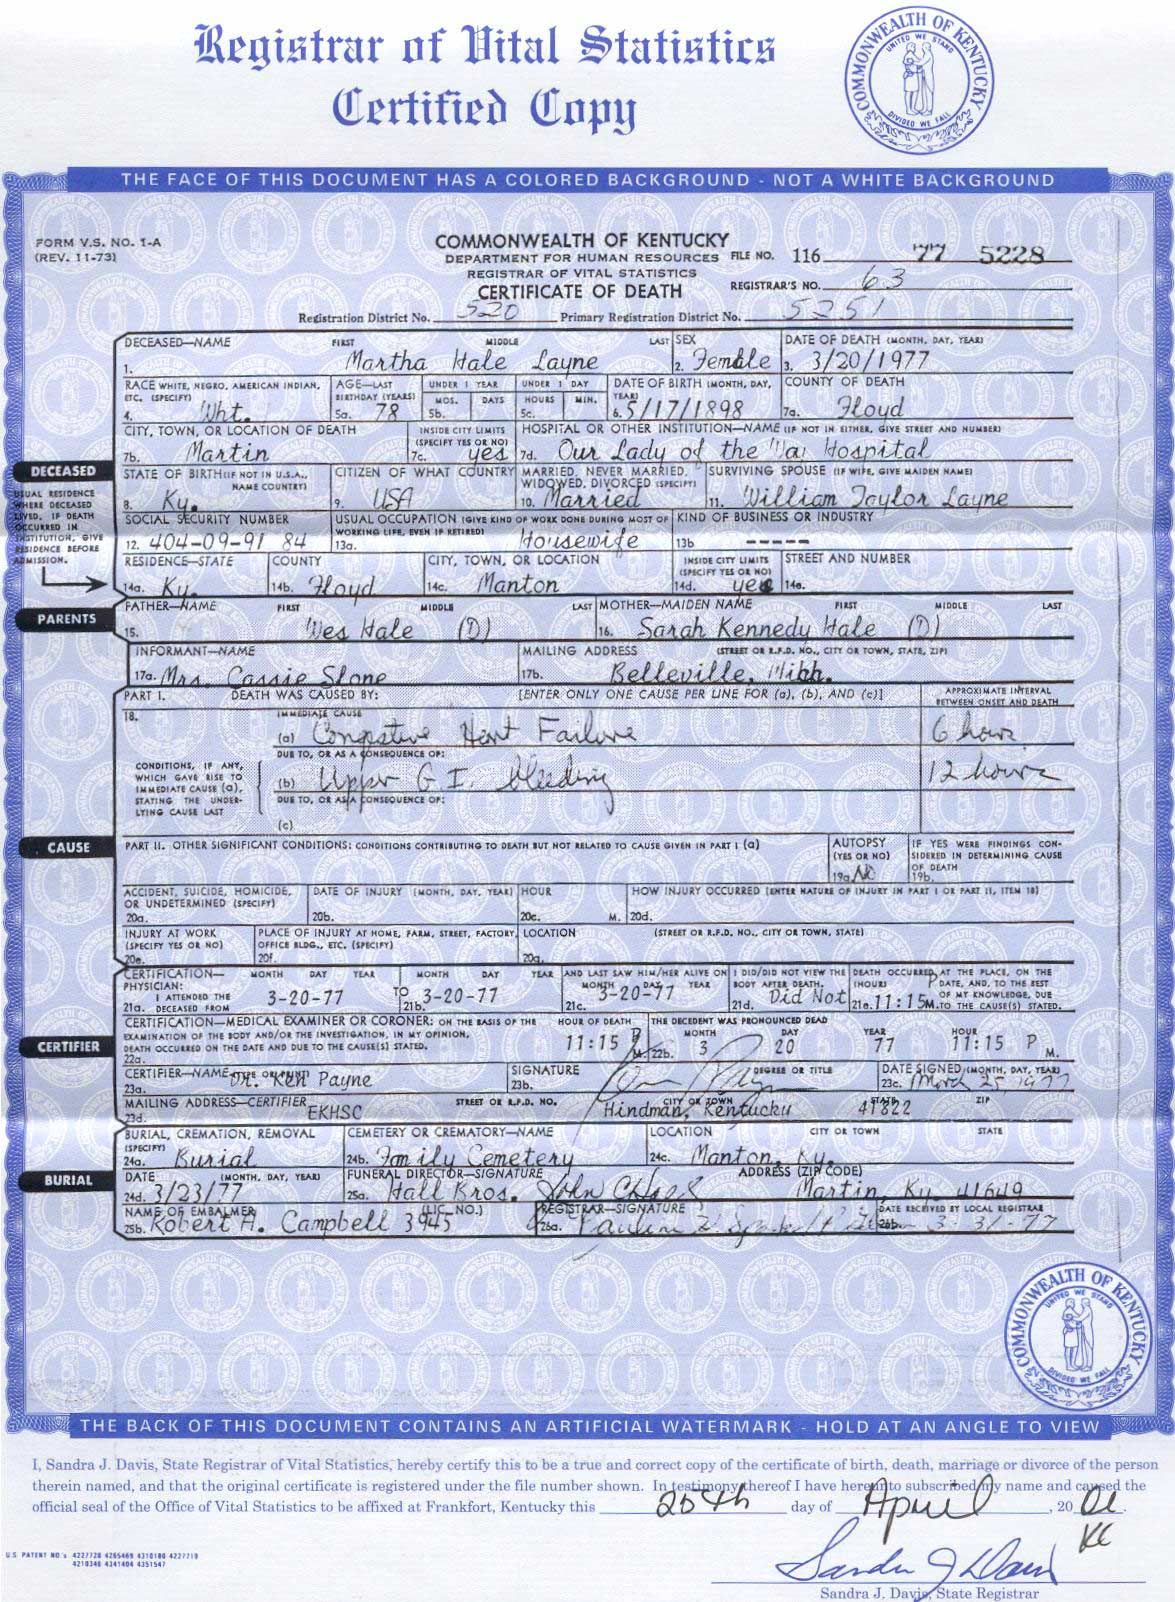 Registrar of Vital Statistics
Certified Copy
COMMONWEALTH OF KENTUCKY
UNITED WE STAND
DIVIDED WE FALL
THE FACE OF THIS DOCUMENT HAS A COLORED BACKGROUND - NOT A WHITE BACKGROUND
FORM V.S. NO. 1-A
(REV. 11-73)
COMMONWEALTH OF KENTUCKY
DEPARTMENT FOR HUMAN RESOURCES FILE NO. 116 77 5228
REGISTRAR OF VITAL STATISTICS
CERTIFICATE OF DEATH REGISTRAR'S NO. 63
Registration District No. 520 Primary Registration District No. 5251
DECEASED—NAME FIRST MIDDLE LAST SEX DATE OF DEATH (MONTH, DAY, YEAR)
1. Martha Hale Layne 2. Female 3. 3/20/1977
RACE WHITE, NEGRO, AMERICAN INDIAN, ETC. (SPECIFY) AGE—LAST BIRTHDAY (YEARS) UNDER 1 YEAR UNDER 1 DAY DATE OF BIRTH (MONTH, DAY, YEAR) COUNTY OF DEATH
MOS. DAYS HOURS MIN.
4. Wht. 5a. 78 5b. 5c. 6. 5/17/1898 7a. Floyd
CITY, TOWN, OR LOCATION OF DEATH INSIDE CITY LIMITS (SPECIFY YES OR NO) HOSPITAL OR OTHER INSTITUTION—NAME (IF NOT IN EITHER, GIVE STREET AND NUMBER)
7b. Martin 7c. yes 7d. Our Lady of the Way Hospital
DECEASED
USUAL RESIDENCE WHERE DECEASED LIVED. IF DEATH OCCURRED IN INSTITUTION, GIVE RESIDENCE BEFORE ADMISSION.
STATE OF BIRTH (IF NOT IN U.S.A., NAME COUNTRY) CITIZEN OF WHAT COUNTRY MARRIED, NEVER MARRIED, WIDOWED, DIVORCED (SPECIFY) SURVIVING SPOUSE (IF WIFE, GIVE MAIDEN NAME)
8. Ky. 9. USA 10. Married 11. William Taylor Layne
SOCIAL SECURITY NUMBER USUAL OCCUPATION (GIVE KIND OF WORK DONE DURING MOST OF WORKING LIFE, EVEN IF RETIRED) KIND OF BUSINESS OR INDUSTRY
12. 404-09-91 84 13a. Housewife 13b -----
RESIDENCE—STATE COUNTY CITY, TOWN, OR LOCATION INSIDE CITY LIMITS (SPECIFY YES OR NO) STREET AND NUMBER
14a. Ky. 14b. Floyd 14c. Manton 14d. yes 14e.
PARENTS
FATHER—NAME FIRST MIDDLE LAST MOTHER—MAIDEN NAME FIRST MIDDLE LAST
15. Wes Hale (D) 16. Sarah Kennedy Hale (D)
INFORMANT—NAME MAILING ADDRESS (STREET OR R.F.D. NO., CITY OR TOWN, STATE, ZIP)
17a. Mrs. Cassie Slone 17b. Belleville, Mich.
PART I. DEATH WAS CAUSED BY: [ENTER ONLY ONE CAUSE PER LINE FOR (a), (b), AND (c)] APPROXIMATE INTERVAL BETWEEN ONSET AND DEATH
18. IMMEDIATE CAUSE
(a) Congestive Heart Failure 6 hours
DUE TO, OR AS A CONSEQUENCE OF:
CONDITIONS, IF ANY, WHICH GAVE RISE TO IMMEDIATE CAUSE (a), STATING THE UNDERLYING CAUSE LAST
(b) Upper G.I. bleeding 12 hours
DUE TO, OR AS A CONSEQUENCE OF:
(c)
CAUSE
PART II. OTHER SIGNIFICANT CONDITIONS: CONDITIONS CONTRIBUTING TO DEATH BUT NOT RELATED TO CAUSE GIVEN IN PART I (a) AUTOPSY (YES OR NO) IF YES WERE FINDINGS CONSIDERED IN DETERMINING CAUSE OF DEATH
19a. NO 19b.
ACCIDENT, SUICIDE, HOMICIDE, OR UNDETERMINED (SPECIFY) DATE OF INJURY (MONTH, DAY, YEAR) HOUR HOW INJURY OCCURRED (ENTER NATURE OF INJURY IN PART I OR PART II, ITEM 18)
20a. 20b. 20c. M. 20d.
INJURY AT WORK (SPECIFY YES OR NO) PLACE OF INJURY AT HOME, FARM, STREET, FACTORY, OFFICE BLDG., ETC. (SPECIFY) LOCATION (STREET OR R.F.D. NO., CITY OR TOWN, STATE)
20e. 20f. 20g.
CERTIFICATION—PHYSICIAN: MONTH DAY YEAR MONTH DAY YEAR AND LAST SAW HIM/HER ALIVE ON MONTH DAY YEAR I DID/DID NOT VIEW THE BODY AFTER DEATH. DEATH OCCURRED (HOUR) AT THE PLACE, ON THE DATE, AND, TO THE BEST OF MY KNOWLEDGE, DUE TO THE CAUSE(S) STATED.
21a. I ATTENDED THE DECEASED FROM 3-20-77 TO 21b. 3-20-77 21c. 3-20-77 21d. Did Not 21e. 11:15 P M.
CERTIFIER
CERTIFICATION—MEDICAL EXAMINER OR CORONER: ON THE BASIS OF THE EXAMINATION OF THE BODY AND/OR THE INVESTIGATION, IN MY OPINION, DEATH OCCURRED ON THE DATE AND DUE TO THE CAUSE(S) STATED. HOUR OF DEATH THE DECEDENT WAS PRONOUNCED DEAD MONTH DAY YEAR HOUR
22a. 11:15 P M. 22b. 3 20 77 11:15 P M.
CERTIFIER—NAME (TYPE OR PRINT) SIGNATURE DEGREE OR TITLE DATE SIGNED (MONTH, DAY, YEAR)
23a. Dr. Ken Payne 23b. 23c. March 25, 1977
MAILING ADDRESS—CERTIFIER STREET OR R.F.D. NO. CITY OR TOWN STATE ZIP
23d. EKHSC Hindman, Kentucky 41822
BURIAL
BURIAL, CREMATION, REMOVAL (SPECIFY) CEMETERY OR CREMATORY—NAME LOCATION CITY OR TOWN STATE
24a. Burial 24b. Family Cemetery 24c. Manton, Ky.
DATE (MONTH, DAY, YEAR) FUNERAL DIRECTOR—SIGNATURE ADDRESS (ZIP CODE)
24d. 3/23/77 25a. Hall Bros. John C Martin, Ky. 41649
NAME OF EMBALMER (LIC. NO.) REGISTRAR—SIGNATURE DATE RECEIVED BY LOCAL REGISTRAR
25b. Robert A. Campbell 3945 26a. 26b. 3-31-77
COMMONWEALTH OF KENTUCKY
UNITED WE STAND
DIVIDED WE FALL
THE BACK OF THIS DOCUMENT CONTAINS AN ARTIFICIAL WATERMARK - HOLD AT AN ANGLE TO VIEW
I, Sandra J. Davis, State Registrar of Vital Statistics, hereby certify this to be a true and correct copy of the certificate of birth, death, marriage or divorce of the person
therein named, and that the original certificate is registered under the file number shown. In testimony thereof I have hereunto subscribed my name and caused the
official seal of the Office of Vital Statistics to be affixed at Frankfort, Kentucky this 25th day of April, 20 01.
U.S. PATENT NO's 4227720 4265469 4310180 4227719
4210346 4341404 4351547
Sandra J Davis
Sandra J. Davis, State Registrar